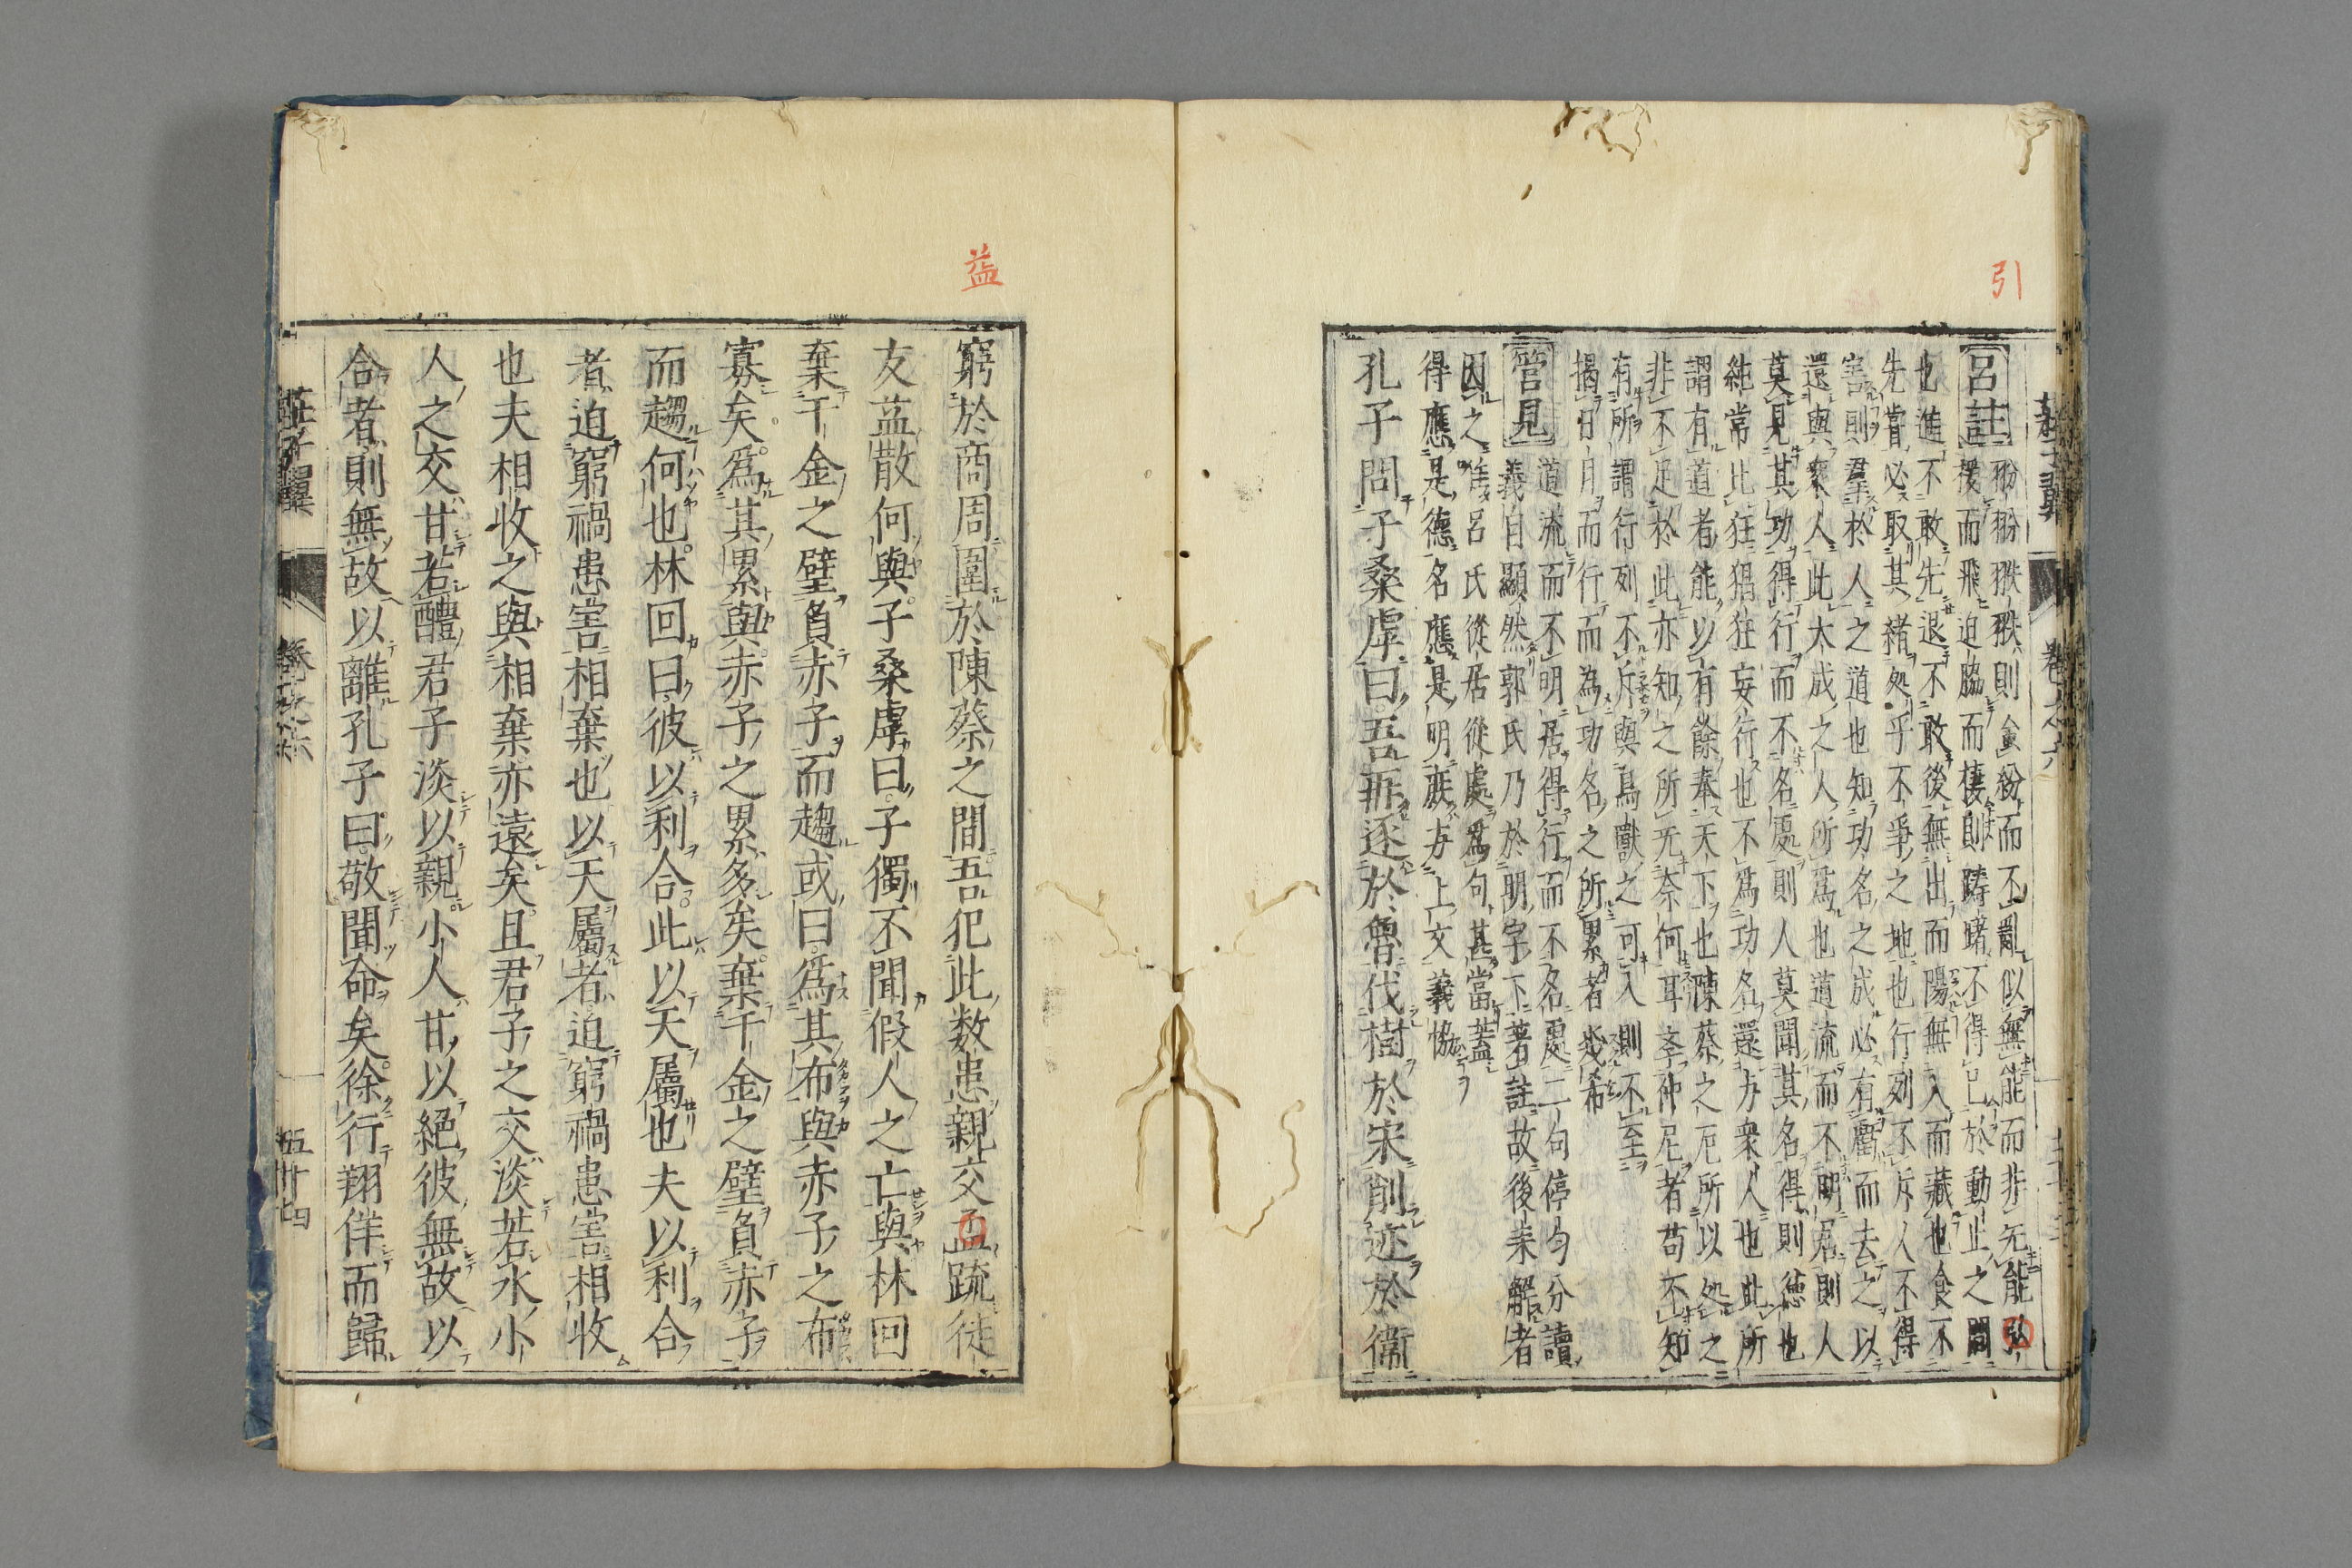 引
莊子翼 卷之六
呂註 翂翂翐翐則貪紛而不亂似無能而非无能弘
援而飛迫脇而棲則躊躇不得已於動止之間
也進不敢先退不敢後無出而陽無入而藏也食不
先嘗必取其緒処乎不爭之地也行列不斥人不得
害則羣於人之道也知功名之成必有虧而去之以
還與衆人此大成之人所爲也道流而不明居則人
莫見其功得行而不名處則人莫聞其名得則德也
純常比狂猖狂妄行也不爲功名還与衆人也此所
謂有道者能以有餘奉天下也陳蔡之厄所以処之
非不足於此亦知之所无奈何耳李仲尼者苟不知
有所謂行列不斥與鳥獸之可入則不至
揭日月而行而為功名之所累者幾希
管見 道流而不明居得行而不名處二句停勻分讀
義自顯然郭氏乃於明字下著註故後来觧者
因之唯呂氏從居從處爲句甚當蓋
得應是德名應是明庶与上文義協
孔子問子桑虖曰吾再逐於魯伐樹於宋削迹於衞
益
窮於商周圍於陳蔡之間吾犯此数患親交益疏徒
友益散何與子桑虖曰子獨不聞假人之亡與林回
棄千金之璧負赤子而趨或曰為其布與赤子之布
寡矣爲其累與赤子之累多矣棄千金之璧負赤子
而趨何也林回曰彼以利合此以天屬也夫以利合
者迫窮禍患害相棄也以天屬者迫窮禍患害相收
也夫相收之與相棄亦遠矣且君子之交淡若水小
人之交甘若醴君子淡以親小人甘以絕彼無故以
合者則無故以離孔子曰敬聞命矣徐行翔佯而歸
莊子翼 卷之六 五十四